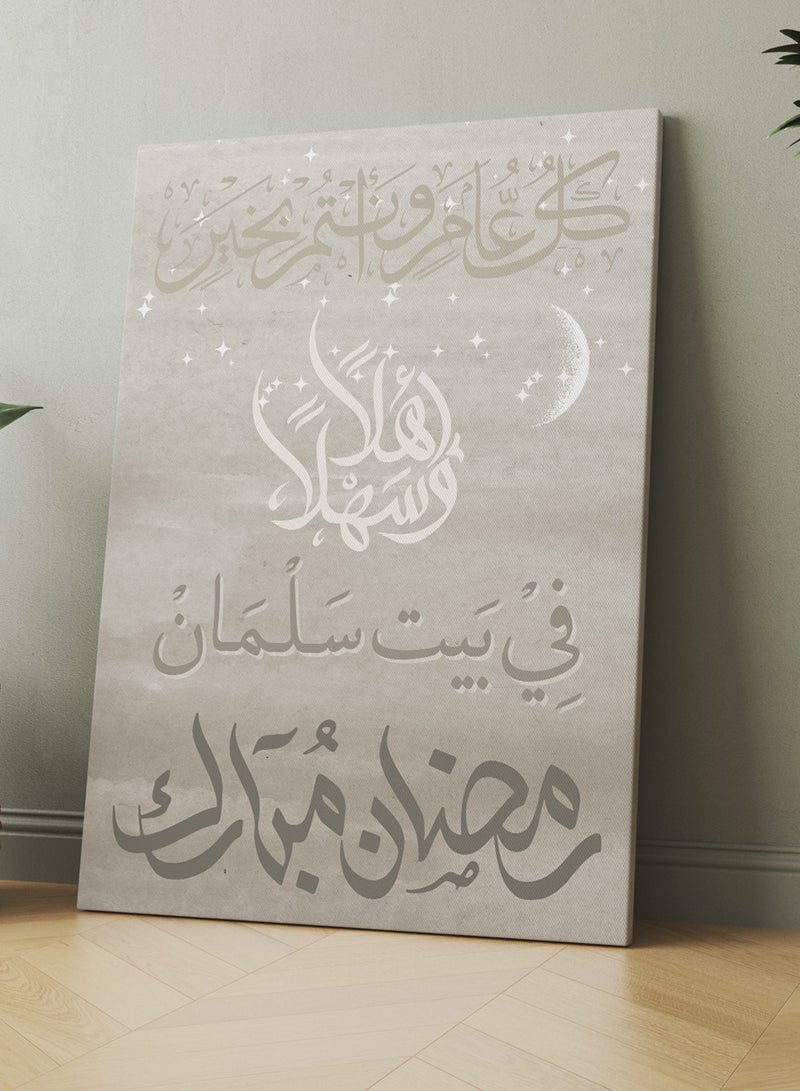 كُلُّ عَامٍ وَأَنْتُمْ بِخَيْرٍ
أَهْلًا
وَسَهْلًا
فِيْ بَيَيت سَلْمَانْ
رمضان مُبَارك